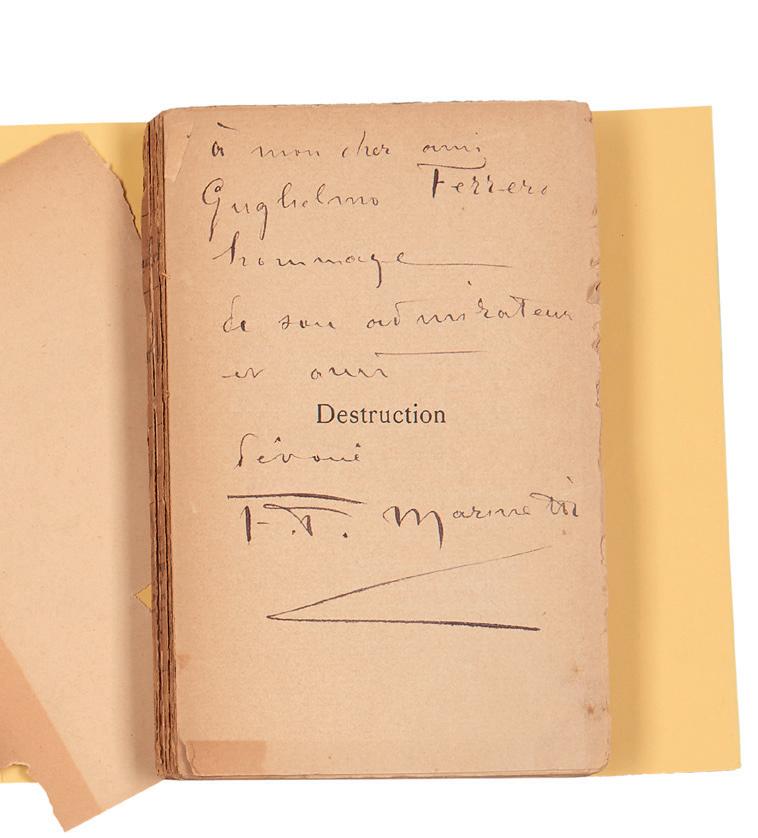 à mon cher ami
Guglielmo Ferrero
hommage
de son admirateur
et ami
Destruction
dévoué
F. T. Marinetti